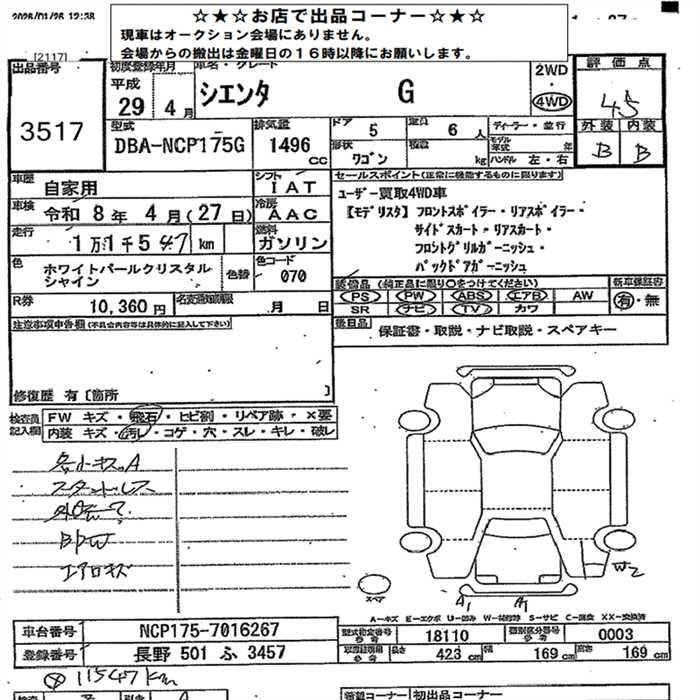 2026/01/26 12:38
☆★☆お店で出品コーナー☆★☆
現車はオークション会場にありません。
会場からの搬出は金曜日の16時以降にお願いします。
[2117]
出品番号 初度登録年月 車名・グレード 2WD 評価点
3517 平成 29年 4月 シエンタ G ・ 4WD 4.5
型式 排気量 ドア 5 定員 6人 ディーラー・並行 外装 内装
DBA-NCP175G 1496 CC 形状 ワゴン 積載 kg モデル年式 年 ハンドル 左・右 B B
車歴 自家用 シフト IAT セールスポイント(正常に機能するものに限ります)
車検 令和 8年 4月(27日) 冷房 AAC ユーザー買取4WD車
【モデリスタ】フロントスポイラー・リアスポイラー・
走行 1万1千547km 燃料 ガソリン サイドスカート・リアスカート・
フロントグリルガーニッシュ・
色 ホワイトパールクリスタルシャイン 色替 色コード 070 バックドアガーニッシュ
装備品(純正品に限り○をつけてください) 新車保証書
R券 10,360円 名変通知期限 月 日 PS・PW・ABS・エアB・AW 有・無
SR ナビ・TV・カワ
注意事項申告欄(不具合内容等は具体的に記入して下さい) 後日品 保証書・取説・ナビ取説・スペアキー
修復歴 有〔箇所 〕
検査員記入欄 FW キズ・飛石・ヒビ割・リペア跡・×要
内装 キズ・汚レ・コゲ・穴・スレ・キレ・破レ
各小キズA
スタッドレス
BPW
エアロキズ
W2
スペア
A1 A1
A−キズ E−エクボ U−凹み W−補修跡 S−サビ C−腐食 XX−交換済
車台番号 NCP175-7016267 型式指定番号 参考 18110 類別区分番号 参考 0003
登録番号 長野 501 ふ 3457 長さ 423cm 幅 169cm 高さ 169cm
11547km
初出品コーナー